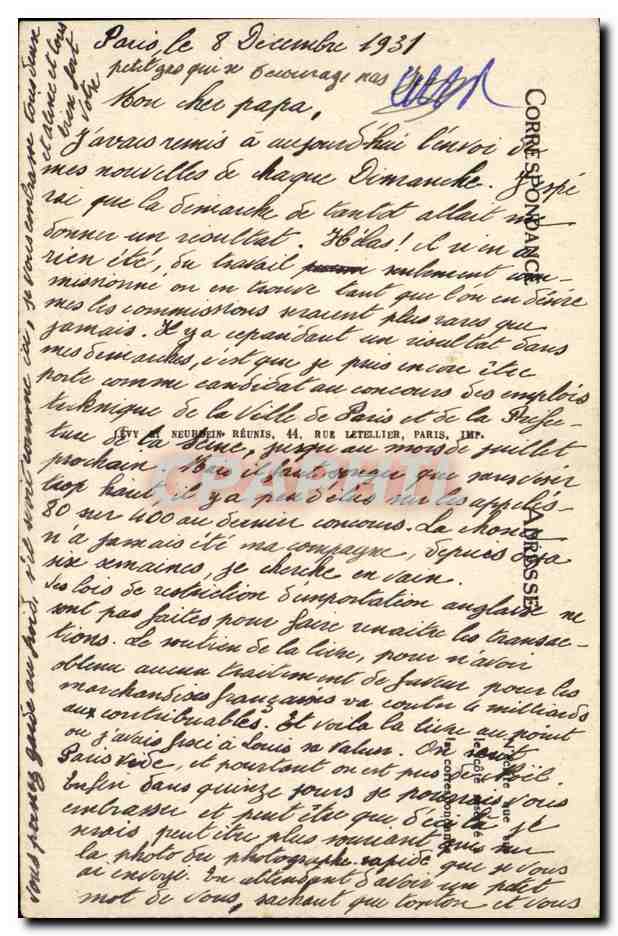 Paris, le 8 Décembre 1931
petit gas qui se décourage pas
Mon cher papa,
J'avais remis à aujourd'hui l'envoi de
mes nouvelles de chaque Dimanche. J'espé
rai que la démarche de tantot allait me
donner un résultat. Hélas! il n'en a
rien été, du travail seulement com-
missionné on en trouve tant que l'on en désire
mes les commissions seraient plus rares que
jamais. Il y a cependant un résultat dans
mes démarches, c'est que je puis encore être
porté comme candidat au concours des emplois
technique de la Ville de Paris et de la Préfec-
LÉVY ET NEURDEIN RÉUNIS, 44, RUE LETELLIER, PARIS, IMP.
ture de la Seine, jusqu'au mois de juillet
prochain. Mais il faut songer que sans viser
trop haut, il y a peu d'élus sur les appelés-
80 sur 400 au dernier concours. La chance
n'a jamais été ma compagne, depuis déja
six semaines, je cherche en vain.
Les lois de restriction d'importation anglaise ne
sont pas faites pour faire renaitre les transac-
tions. Le soutien de la livre, pour n'avoir
obtenu aucun traitement de faveur pour les
marchandises françaises va couter le milliards
aux contribuables. Et voila la livre au point
ou j'avais fixé à Louis sa valeur. On
Paris vide, et pourtant on est pus de Noël.
Enfin dans quinze jours je pourrais vous
embrasser et peut être que d'ici là je
serais peut être plus souriant que sur
la photo du photographe rapide que je vous
ai envoyé. En attendant d'avoir un petit
mot de vous, sachant que tonton et vous
vous prenez garde au froid, s'il sévit comme ici, je vous embrasse tous deux
et aline et tous
bien fort
Votre
CORRESPONDANCE
ADRESSE
CPARAMA